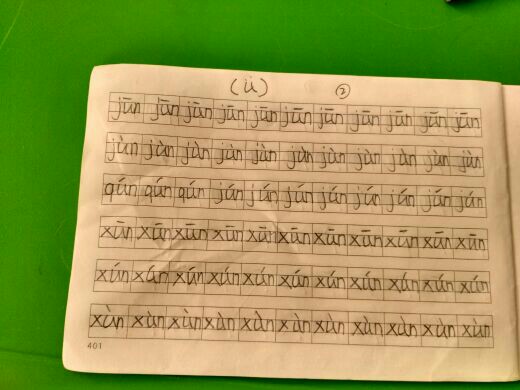 (ü) ②
jūn jūn jūn jūn jūn jūn jūn jūn jūn jūn jūn
jùn jùn jùn jùn jùn jùn jùn jùn jùn jùn jùn
qún qún qún jún jún jún jún jún jún jún jún
xūn xūn xūn xūn xūn xūn xūn xūn xūn xūn xūn
xún xún xún xún xún xún xún xún xún xún xún
xùn xùn xùn xùn xùn xùn xùn xùn xùn xùn xùn
401